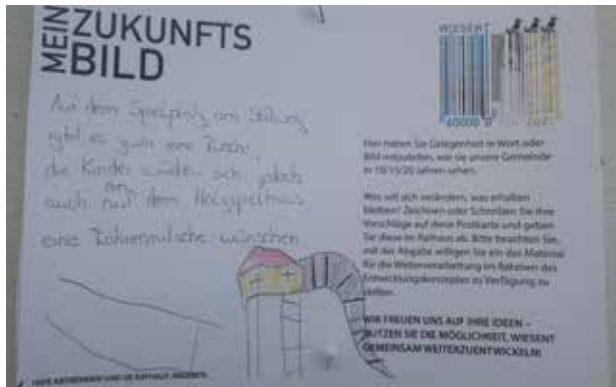 MEIN ZUKUNFTS
BILD
Auf dem Spielplatz am
gibt es zwar eine
die Kinder würden sich jedoch
auch an dem Holzspielhaus
eine Röhrenrutsche wünschen
WIESENT
Hier haben Sie Gelegenheit in Wort oder
Bild mitzuteilen, wie sie unsere Gemeinde
in 10/15/20 Jahren sehen.
Was soll sich verändern, was erhalten
bleiben? Zeichnen oder Schreiben Sie Ihre
Vorschläge auf diese Postkarte und geben
Sie diese im Rathaus ab. Bitte beachten Sie,
mit der Abgabe willigen Sie ein das Material
für die Weiterverarbeitung im Rahmen des
Entwicklungskonzeptes zu Verfügung zu
stellen.
WIR FREUEN UNS AUF IHRE IDEEN –
NUTZEN SIE DIE MÖGLICHKEIT, WIESENT
GEMEINSAM WEITERZUENTWICKELN!